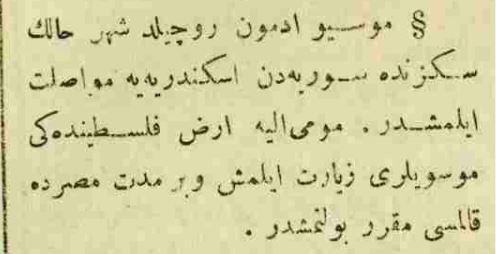 § موسیو ادمون روچیلد شهر حالك
سكزنده سوریه‌دن اسكندریه‌یه مواصلت
ایلمشدر . مومی‌الیه ارض فلسطینده‌كی
موسویلری زیارت ایلمش وبر مدت مصرده
قالمسی مقرر بولنمشدر .